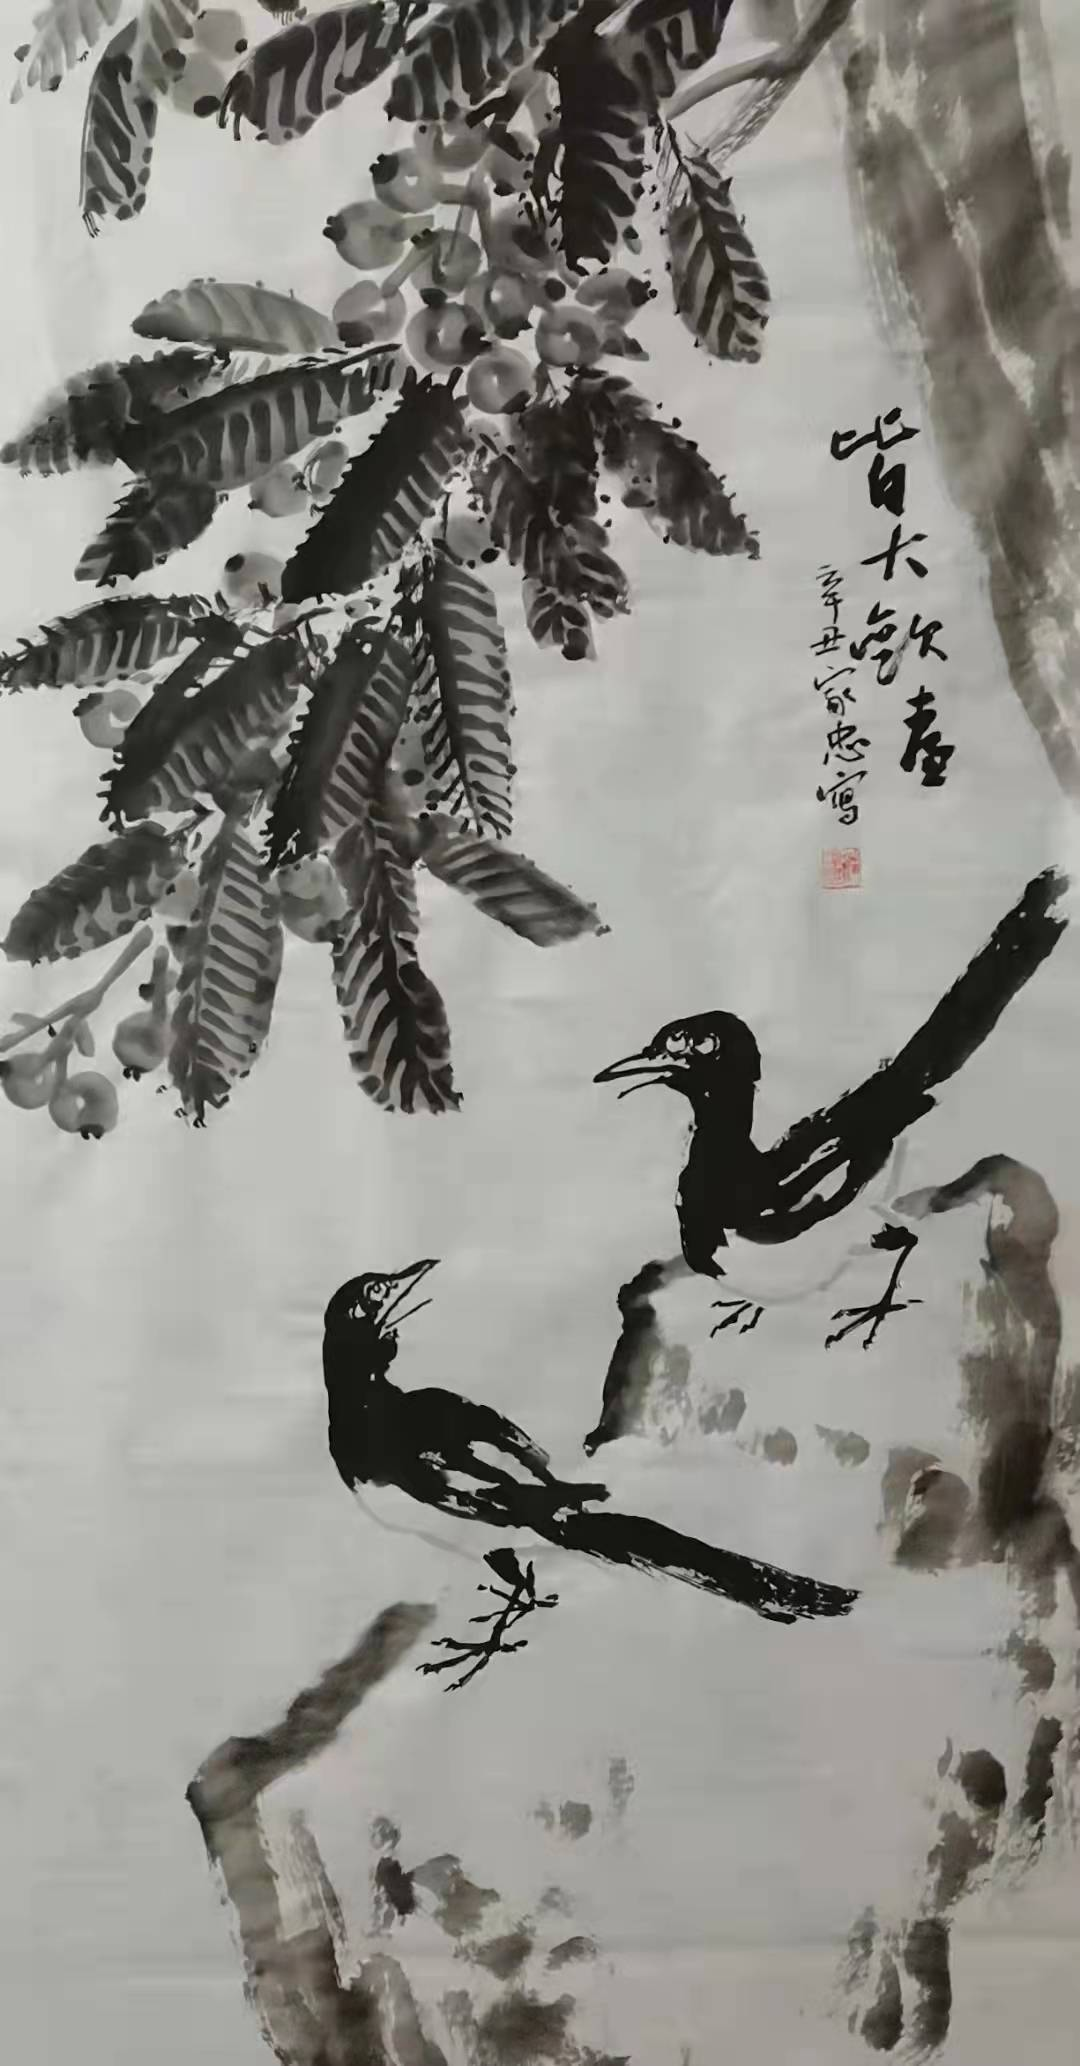 皆大歡喜
辛丑家忠寫